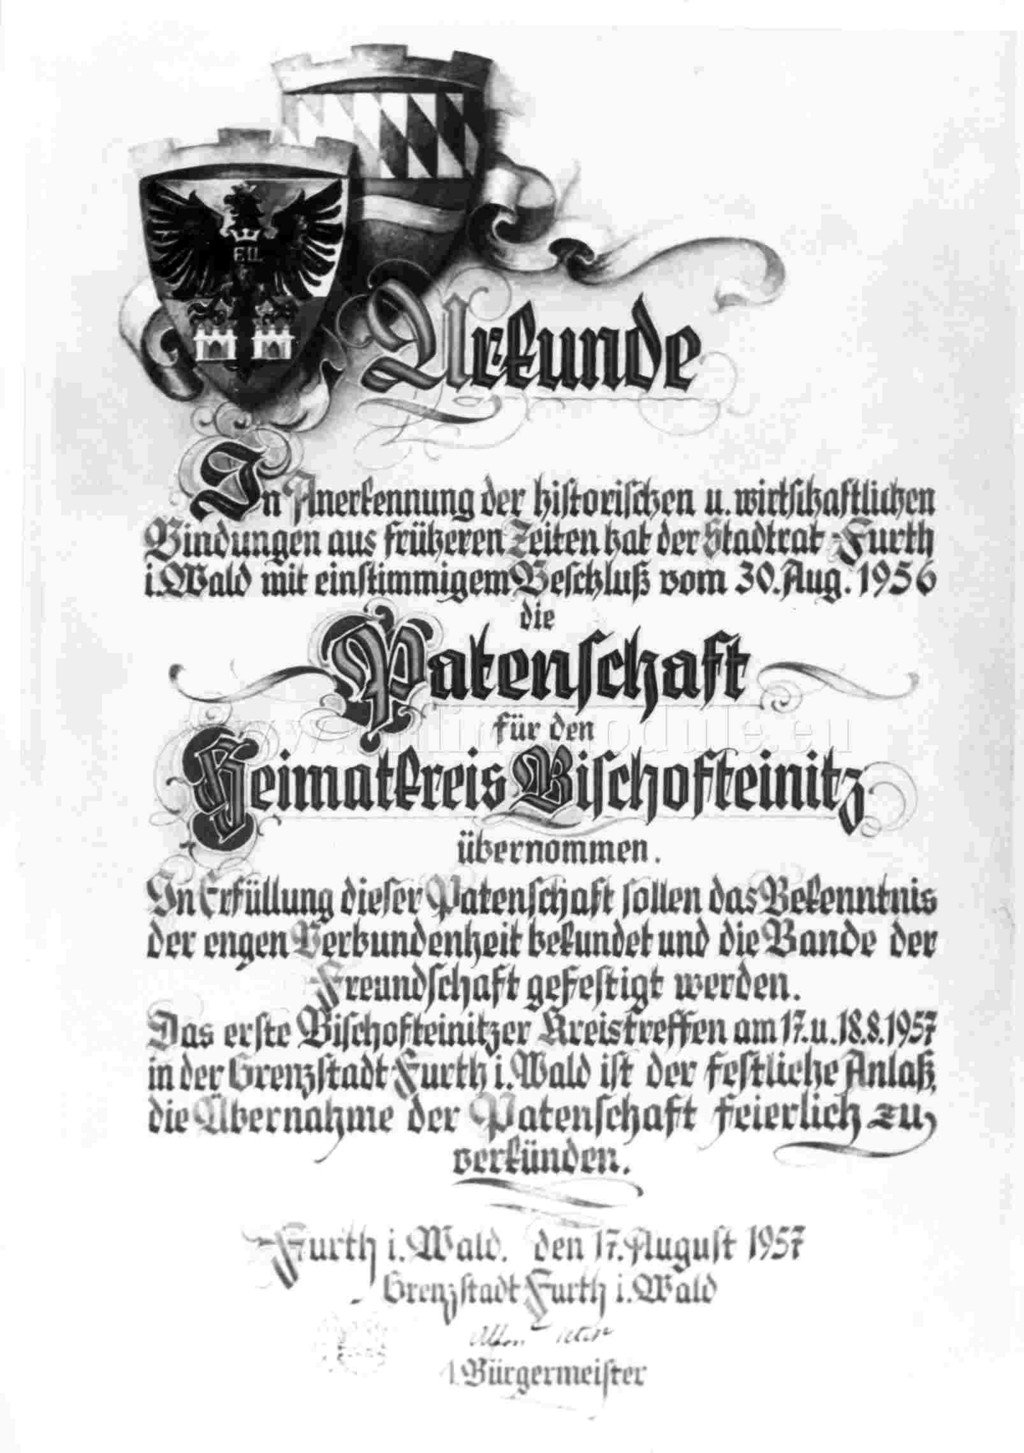 Urkunde
In Anerkennung der historischen u. wirtschaftlichen
Bindungen aus früheren Zeiten hat der Stadtrat Furth
i. Wald mit einstimmigem Beschluß vom 30. Aug. 1956
die
Patenschaft
für den
Heimatkreis Bischofteinitz
übernommen.
In Erfüllung dieser Patenschaft sollen das Bekenntnis
der engen Verbundenheit bekundet und die Bande der
Freundschaft gefestigt werden.
Das erste Bischofteinitzer Kreistreffen am 17. u. 18.8.1957
in der Grenzstadt Furth i. Wald ist der festliche Anlaß,
die Übernahme der Patenschaft feierlich zu
verkünden.
Furth i. Wald. den 17. August 1957
Grenzstadt Furth i. Wald
1. Bürgermeister